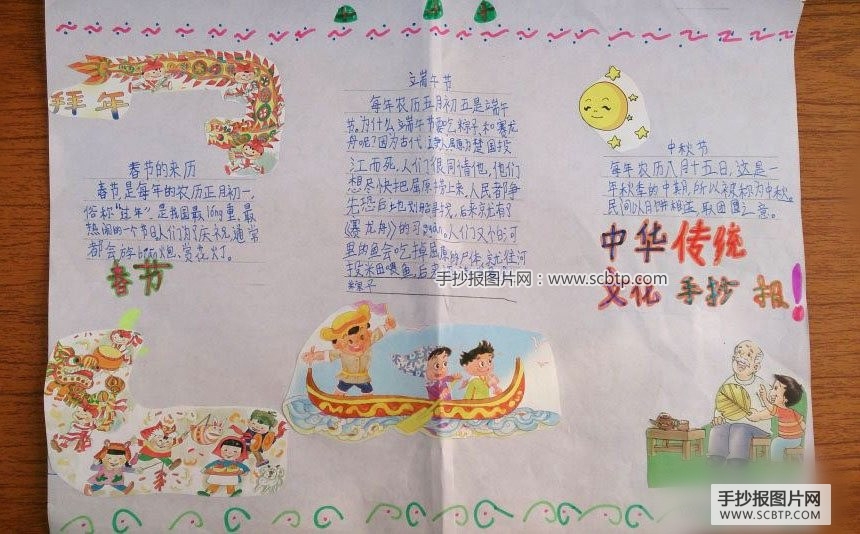 拜年
春节的来历
春节是每年的农历正月初一，
俗称"过年"，是我国最long重、最
热闹的一个节日人们为了庆祝，通常
都会放bian炮、赏花灯。
春节
端午节
每年农历五月初五是端午
节。为什么端午节要吃粽子和赛龙
舟呢？因为古代 屈原为楚国投
江而死，人们很同情他，他们
想尽快把屈原捞上来，人民者争
先恐后地划船 捞，后来就有了
《赛龙舟》的习guan，人们又个的河
里的鱼会吃掉屈原的尸体，就往河
投米团喂鱼，后来
粽子
中秋节
每年农历八月十五日，这是一
年秋季的中期，所以被称为中秋。
民间以月饼相送，取团圆之意。
中华传统
文化 手抄报！
手抄报图片网：www.scbtp.com
手抄报图片网
WWW.SCBTP.COM